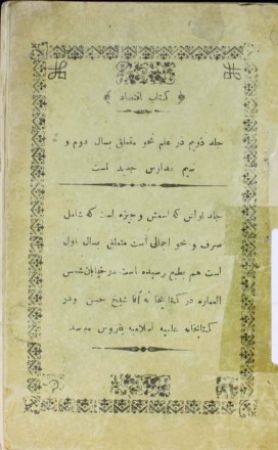 کتاب اقتصاد
جلد دویم در علم نحو متعلق بسال دوم و
سیم مدارس جدید است
جلد اولش که اسمش وجیزه است که شامل
صرف و نحو اجمالی است متعلق بسال اول
است هم بطبع رسیده است در خیابان شمس
العماره در کتابخانه آقا شیخ حسن و در
کتابخانه علمیه اسلامیه بفروش میرسد